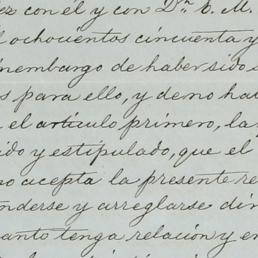 ez con él y con Dn. E. M.
ochocientos cincuenta y
nembargo de haber sido
s para ello, y de no ha
el artículo primero, la
ido y estipulado, que el
no acepta la presente re
nderse y arreglarse di
anto tenga relación y en